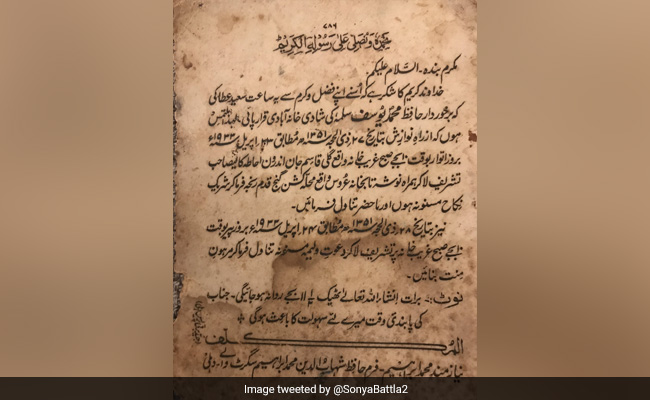 ۷۸۶
نحمدہ ونصلی علیٰ رسولہ الکریم
مکرم بندہ ۔ السّلام علیکم
خداوند کریم کا شکر ہے کہ اُسنے اپنے فضل وکرم سے یہ ساعت سعید عطا کی
کہ برخوردار حافظ محمد یوسف سلمہ کی شادی خانہ آبادی قرار پائی
ہوں کہ ازراہ نوازش بتاریخ ۲۷ ذی الحجہ ۱۳۵۱ھ مطابق ۲۳ اپریل ۱۹۳۳ء
بروز اتوار بوقت بجے صبح غریب خانہ واقع گلی قاسم جان اندرون احاطہ صاحب
تشریف لاکر ہمراہ نوشہ تا بخانہ عروس واقع محلہ کشن گنج قدم رنجہ فرماکر شریک
نکاح مسنونہ ہوں اور ما حضر تناول فرمائیں۔
نیز بتاریخ ۲۸ ذی الحجہ ۱۳۵۱ھ مطابق ۲۴ اپریل ۱۹۳۳ء بروز پیر بوقت
۱۰ بجے صبح غریب خانہ پر تشریف لاکر دعوت ولیمہ مسنونہ تناول فرماکر مرہون
منت بنائیں۔
نوٹ:۔ برات انشاء اللہ تعالےٰ ٹھیک ۱۱ بجے روانہ ہوجائیگی۔ جناب
کی پابندی وقت میرے لئے سہولت کا باعث ہوگی
المکلف
نیازمند محمد ابراہیم ۔ فرم حافظ شہاب الدین محمد ابراہیم سگرٹ والے ۔ دہلی
Image tweeted by @SonyaBattla2